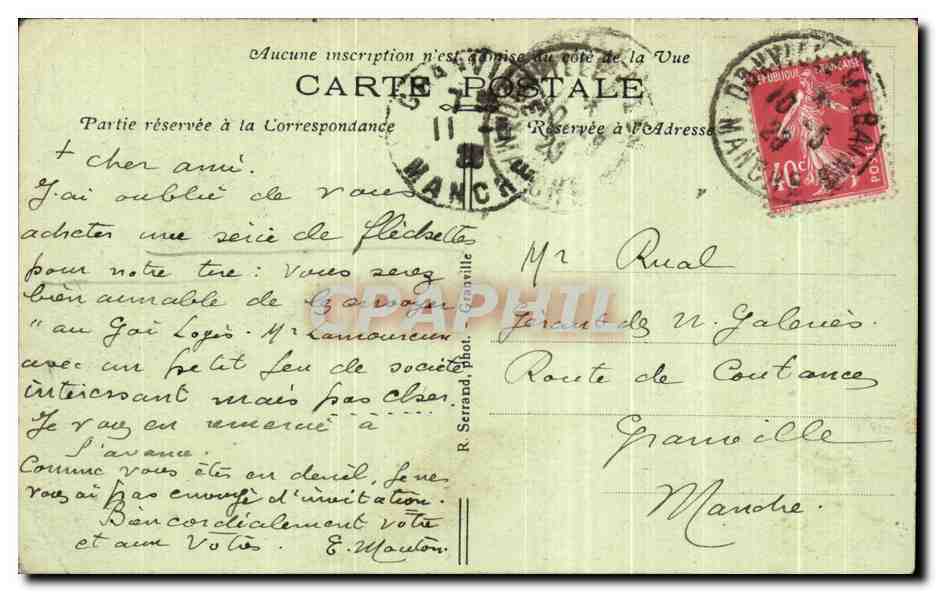 Aucune inscription n'est admise du côté de la Vue
CARTE POSTALE
Partie réservée à la Correspondance
Réservée à l'Adresse
+ cher ami.
J'ai oublié de vous
acheter une série de fléchettes
pour notre tire : vous serez
bien aimable de les envoyer
" au Gai Logis. Mr Lamoureux
avec un petit jeu de société
intéressant mais pas cher.
Je vous en remercie à
l'avance.
Comme vous êtes en deuil, je ne
vous ai pas envoyé d'invitation.
Bien cordialement vôtre
et aux Vôtres. E. Mauton
R. Serrand, phot. Granville
Mr Rual
Gérant des N. Galeries.
Route de Coutances
Granville
Manche.
MANCHE
11
REPUBLIQUE FRANÇAISE
40c
POSTES
DONVILLE
CPARAMA
CPAPHIL